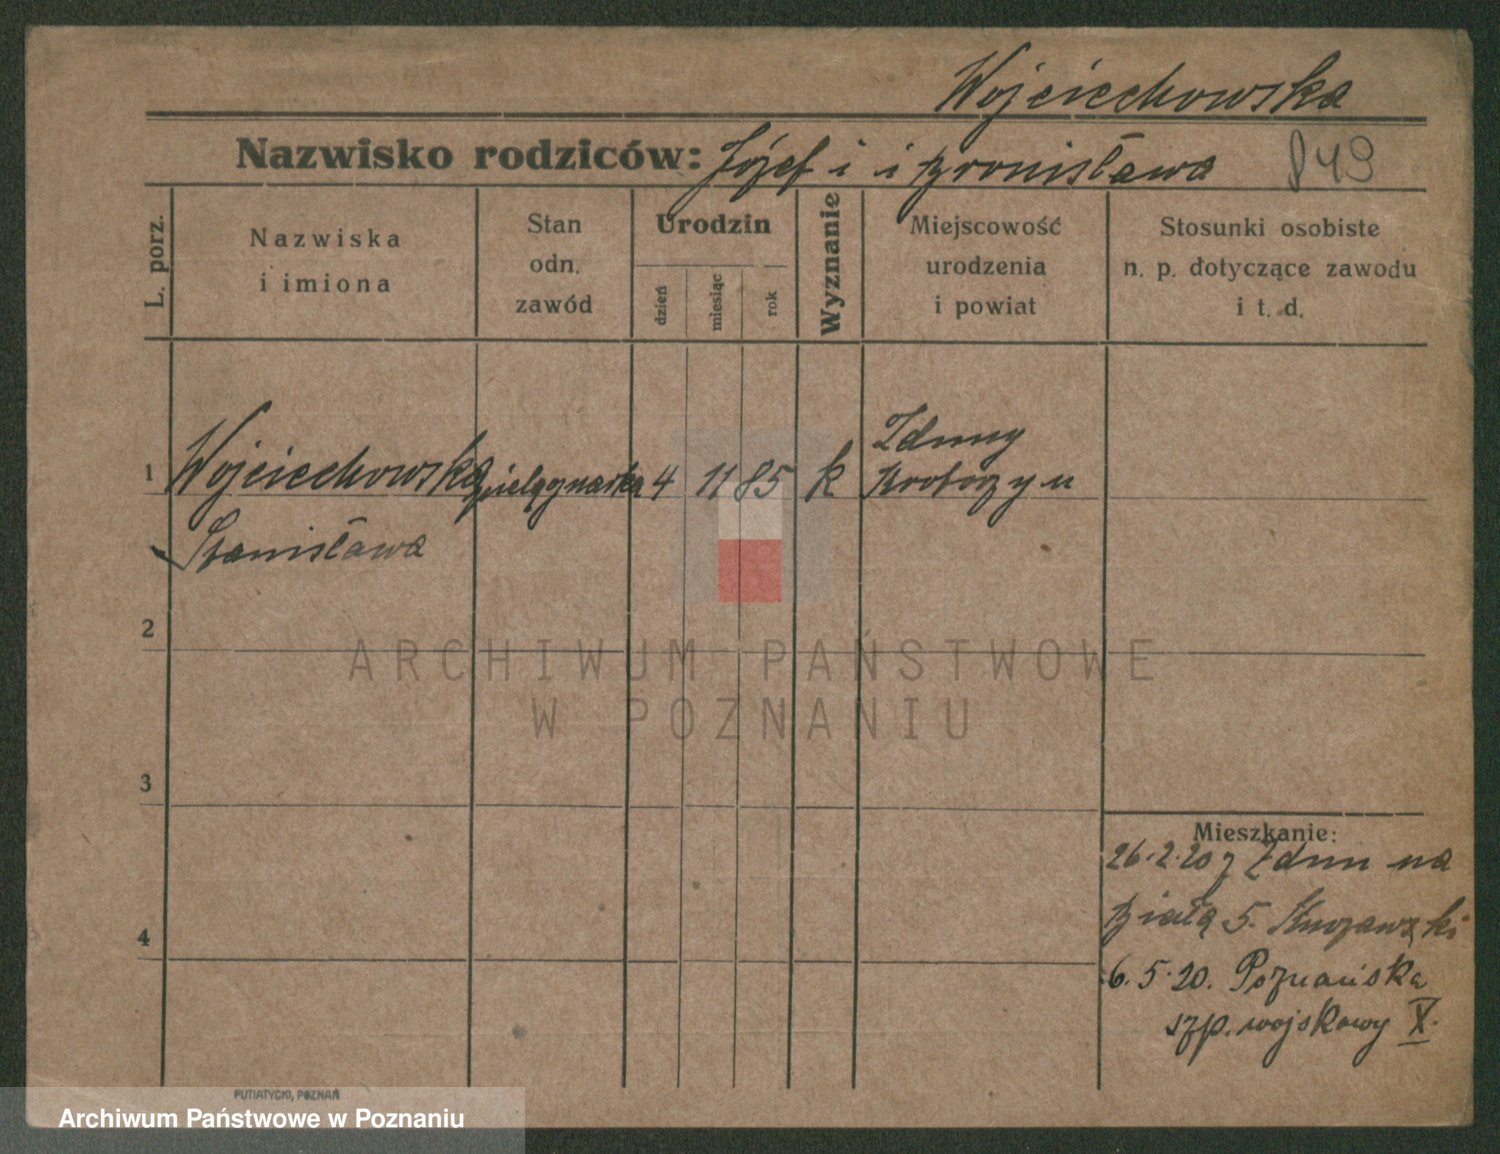 Wojciechowska
Nazwisko rodziców: Józef i i Bronisława 849
L. porz.
Nazwiska
i imiona
Stan
odn.
zawód
Urodzin
dzień
miesiąc
rok
Wyznanie
Miejscowość
urodzenia
i powiat
Stosunki osobiste
n. p. dotyczące zawodu
i t. d.
Zduny
1 Wojciechowska pielęgnarka 4 11 85 k Krotoszyn
Stanisława
2
ARCHIWUM PAŃSTWOWE
W POZNANIU
3
Mieszkanie:
26.2.20 z Zdun na
5.
4
6.5.20. Poznańska
szp. wojskowy X.
PUTIATYCKI, POZNAŃ
Archiwum Państwowe w Poznaniu